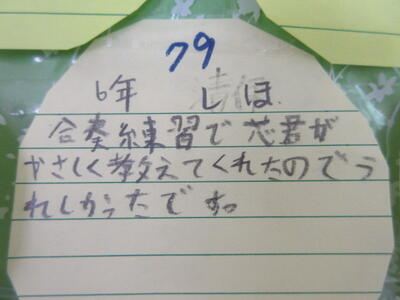 79
6年 しほ
合奏練習で芯君が
やさしく教えてくれたのでう
れしかったです。